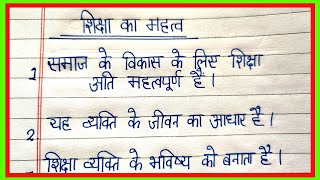 शिक्षा का महत्व
1. समाज के विकास के लिए शिक्षा
अति महत्वपूर्ण है ।
2. यह व्यक्ति के जीवन का आधार है ।
शिक्षा व्यक्ति के भविष्य को बनाता है ।